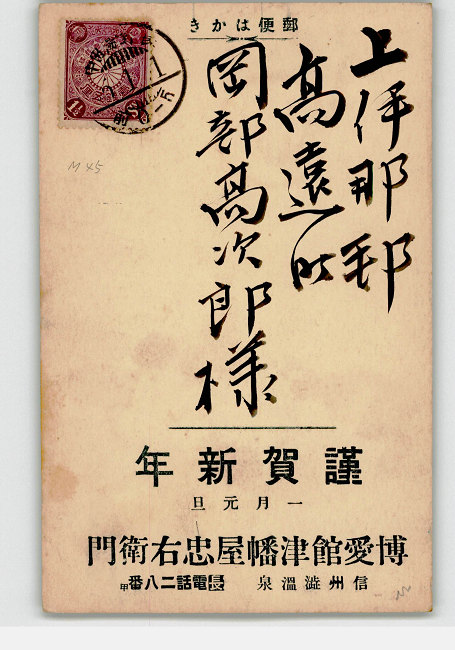 郵便はかき
上伊那郡
高遠町
岡部高次郎様
M45
謹賀新年
一月元旦
博愛館津幡屋忠右衛門
信州澁溫泉
長電話二八番甲